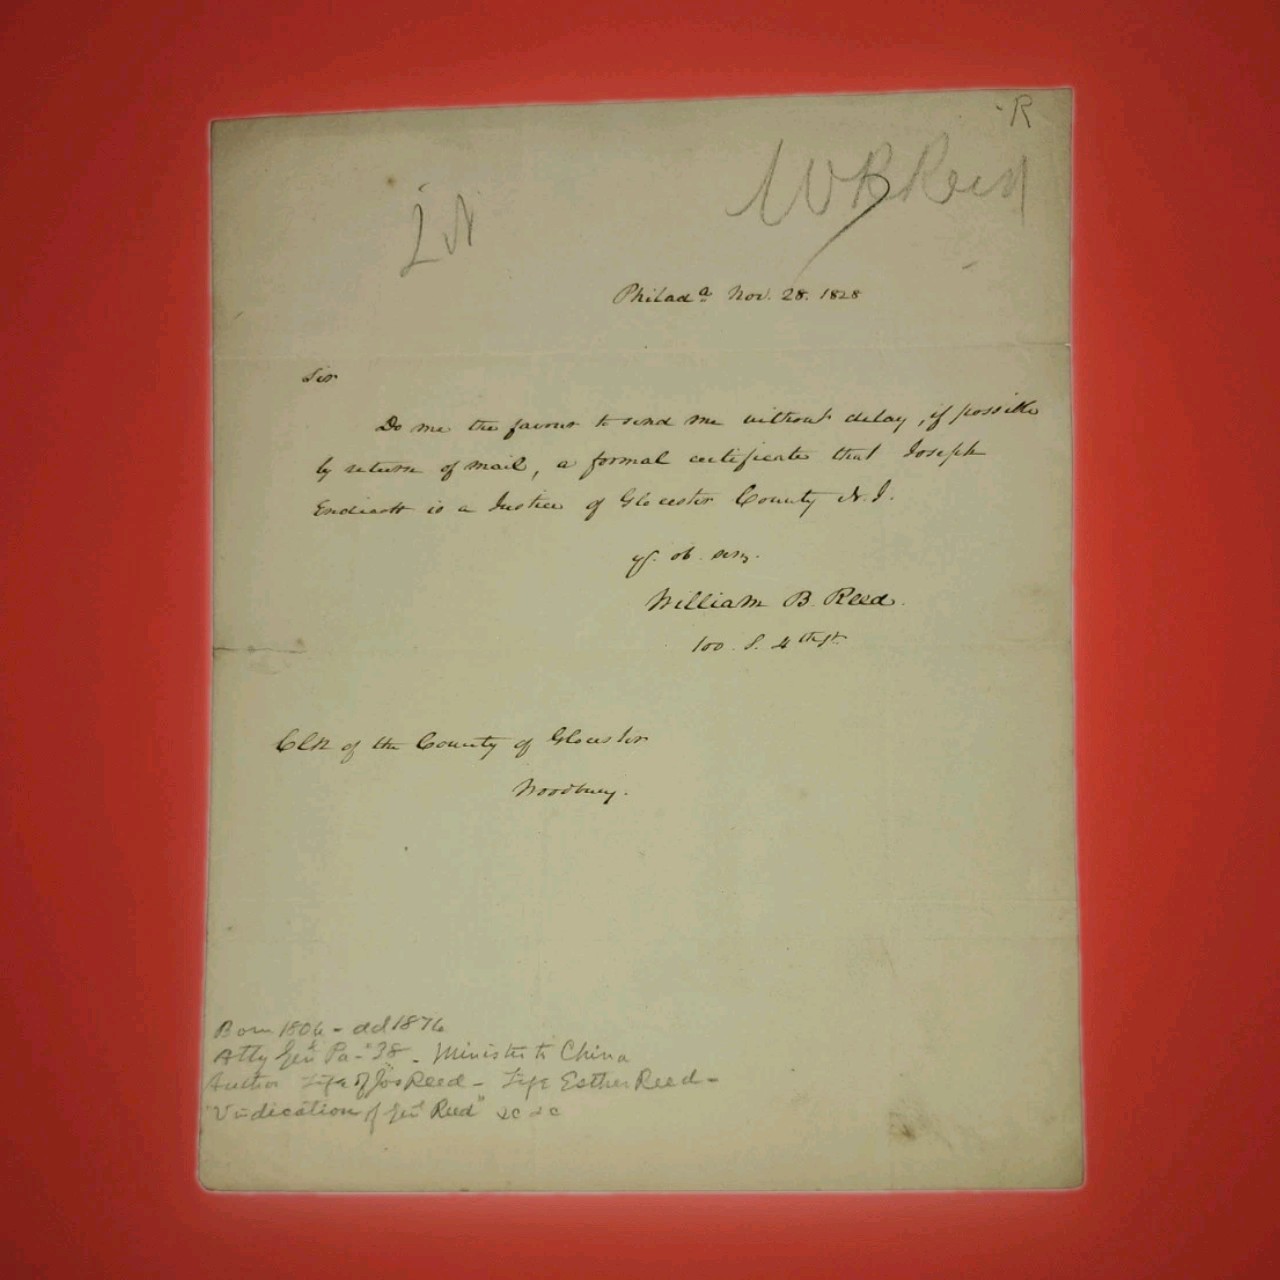 R
W B Reed
Philad.a Nov. 28. 1828
Sir
Do me the favour to send me without delay, if possible
by return of mail, a formal certificate that Joseph
Endicott is a Justice of Glocester County N. J.
ob. serv.
William B. Reed.
100. S. 4th st.
Clk of the County of Glocester
Woodbury.
Born 1806 - dd 1876
Atty Genl Pa - '38 - Minister to China
Author Life of Jos Reed - Life Esther Reed -
"Vindication of Genl Reed" &c &c